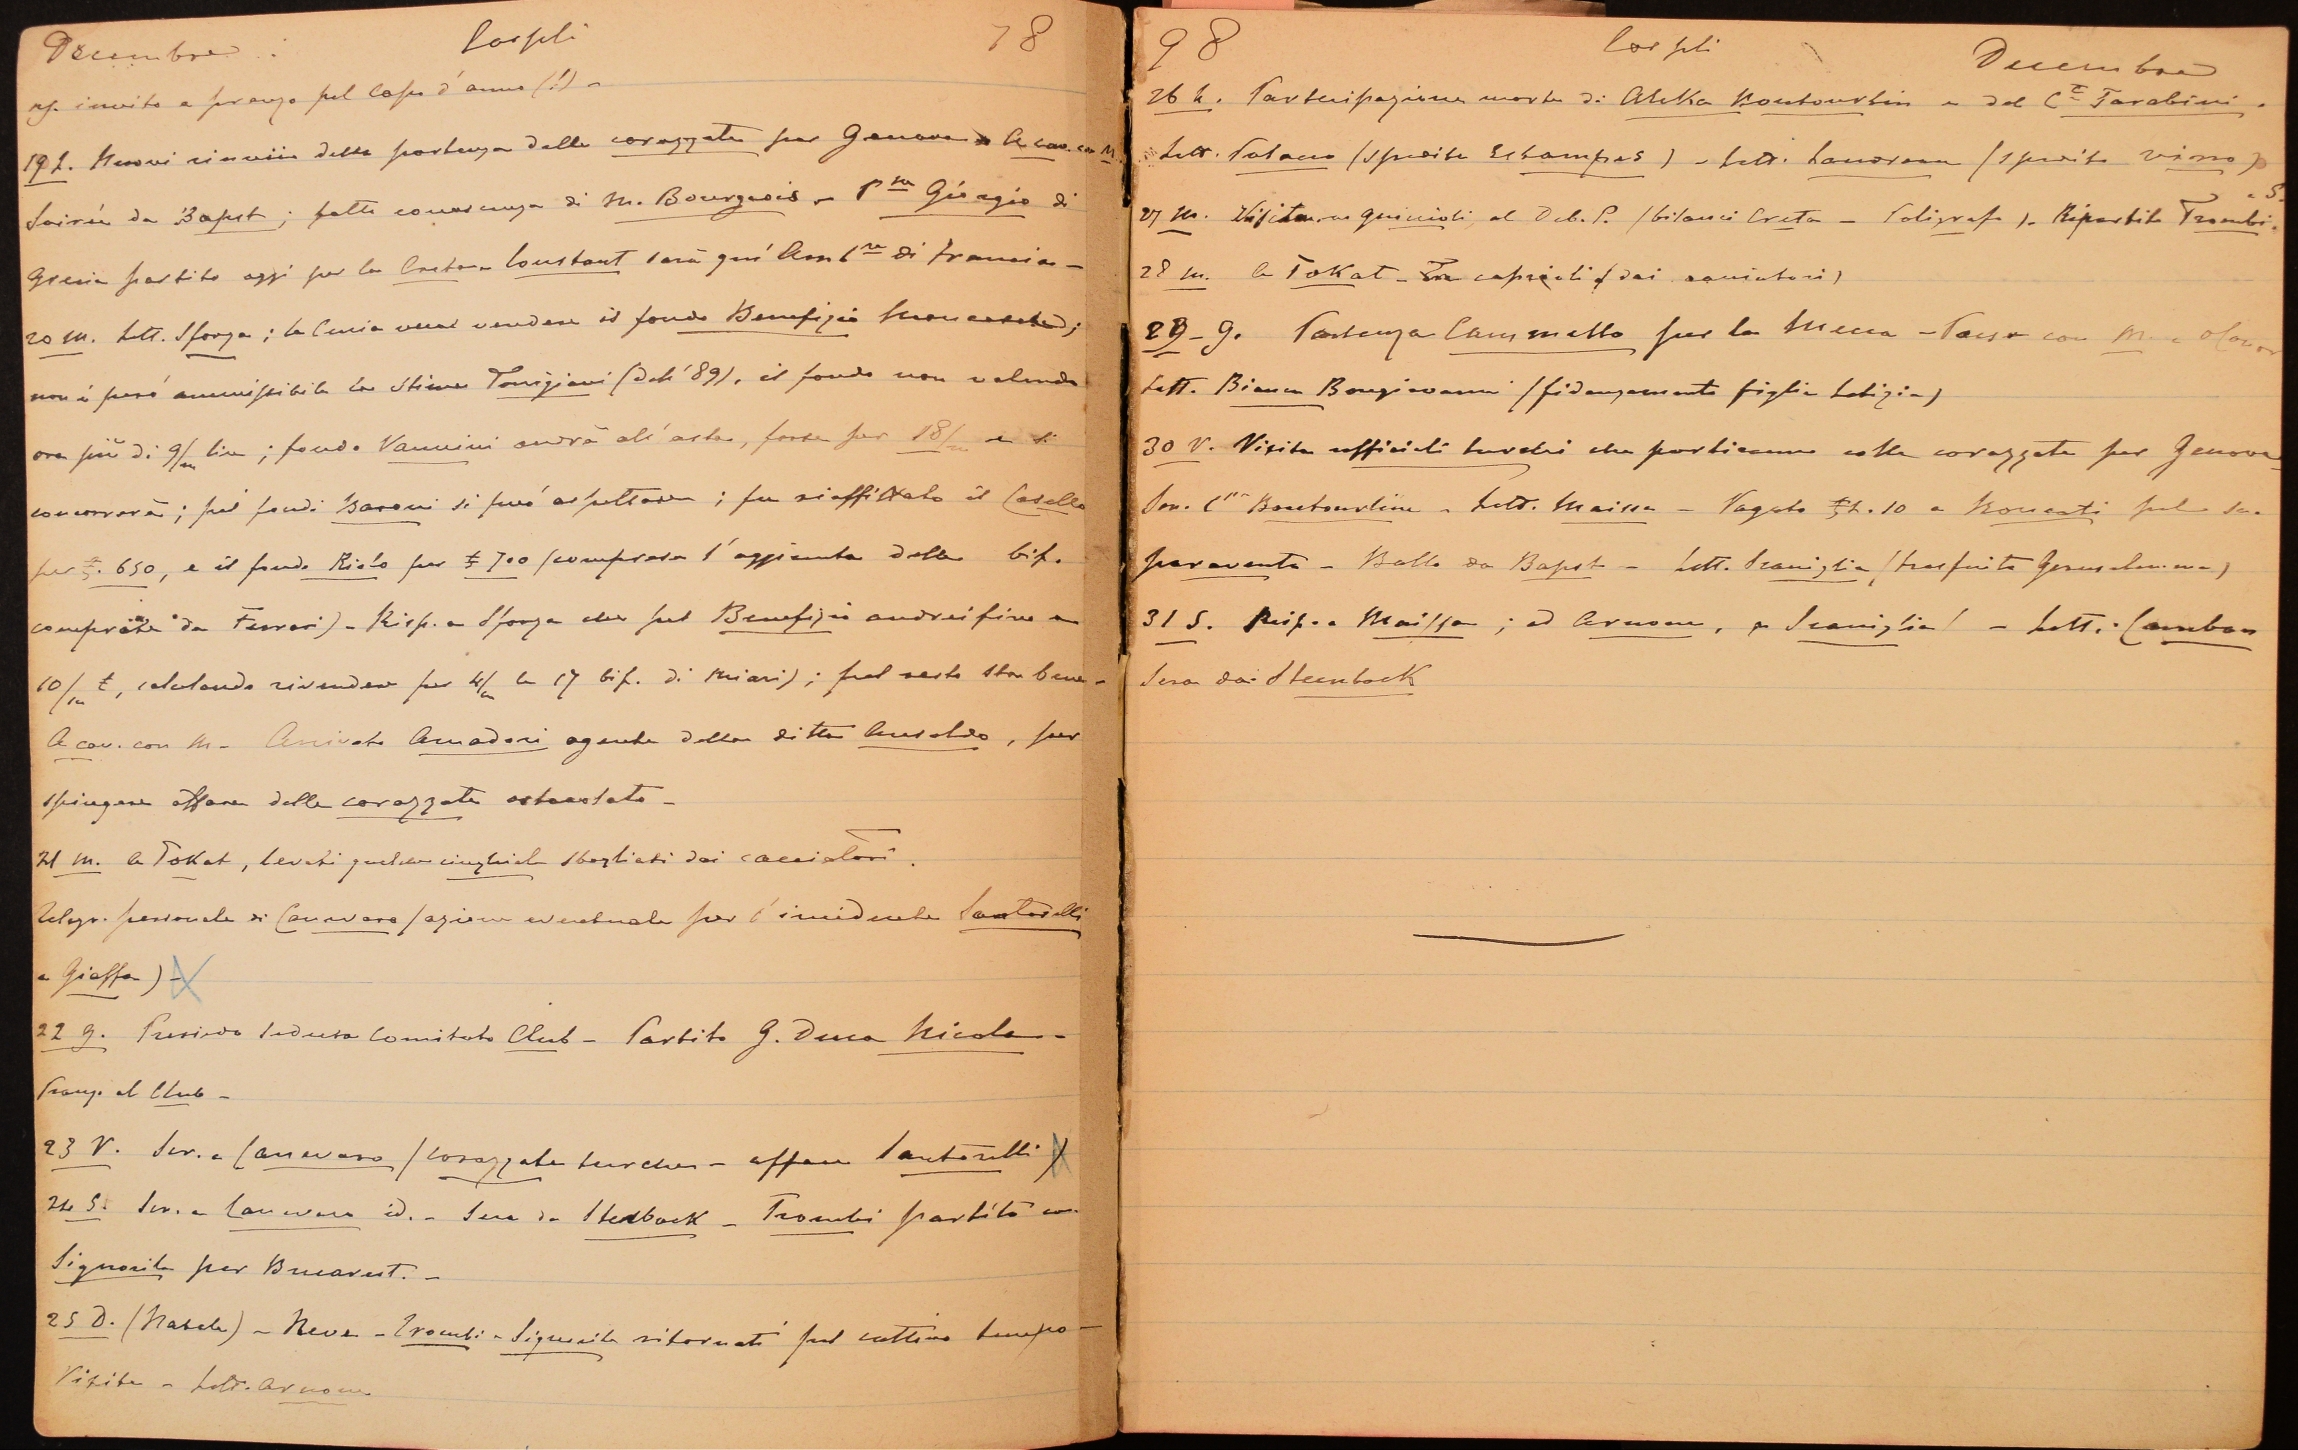 Decembre Cospli 98
invito a pranzo pel Capo d'anno (!) -
19 L. Nuovi rinvii della partenza delle corazzate per Genova - A cav. con M.
Soirée da Bapst; fatta conoscenza di M. Bourgeois - Pse Giorgio di
Grecia partito oggi per la Creta - Constant sarà qui Ambre di Francia -
20 M. Lett. Sforza; la Curia vuol vendere il fondo Benefizio;
non è però ammissibile la stima Torrigiani (dell' 89), il fondo non valendo
ora più di 9/m lire; fondo Vannini andrà all'asta, forse per 18/m e si
concorrerà; pel fondi Baroni si può aspettare; fu riaffittato il Casello
per £. 650, e il fondo Riolo per £ 700 (compresa l'aggiunta della bif.
comprata da Ferrari) - Risp. a Sforza che pel Benefizio andrei fino a
10/m £, calcolando rivendere per 4/m le 17 bif. di Miari); pel resto sta bene -
A cav. con M - Arrivato Amadori agente della ditta Ansaldo, per
spingere affare delle corazzate
21 M. A Tokat, levati qualche cinghiale sbagliati dai cacciatori.
Telegr. personale di Canevaro (azione eventuale per l'incidente Santorelli
a Giaffa) -
22 G. Presiedo seduta Comitato Club - Partito G. Duca Nicola -
Pranzo al Club -
23 V. Scr. a Canevaro (corazzate turche - affare Santorelli)
24 S. Scr. a Canevaro id. - Sera da Stenbock - Trombi partito con
Signorile per Bucarest. -
25 D. (Natale) - Neve - Trombi e Signorile ritornati pel cattivo tempo -
Visite - Lett. Arnone
98 Cospli Decembre
26 L. Partecipazione morte di Aleka Boutourlin e del Cte Tarabini.
Lett. Polacco (spedite Estampes) - Lett. (spedito vino)
27 M. Guiccioli, al Deb. P. (bilanci Creta - Poligrafo) - Ripartito Trombi e S.
28 M. A Tokat - caprioli (dai cacciatori)
29 - G. Partenza Cammello per la Mecca - con M.
Lett. Bianca Bongiovanni (fidanzamento figlia Letizia)
30 V. Visita ufficiali turchi che partiranno colle corazzate per Genova
Scr. Boutourline - Lett. Maissa - Pagato 10 a pel
paravento - Ballo da Bapst - Lett. Scaniglia (trasferito Gerusalemme)
31 S. Risp. a Maissa; ad Arnone, a Scaniglia - Lett. Cambon
Sera dai Stenbock